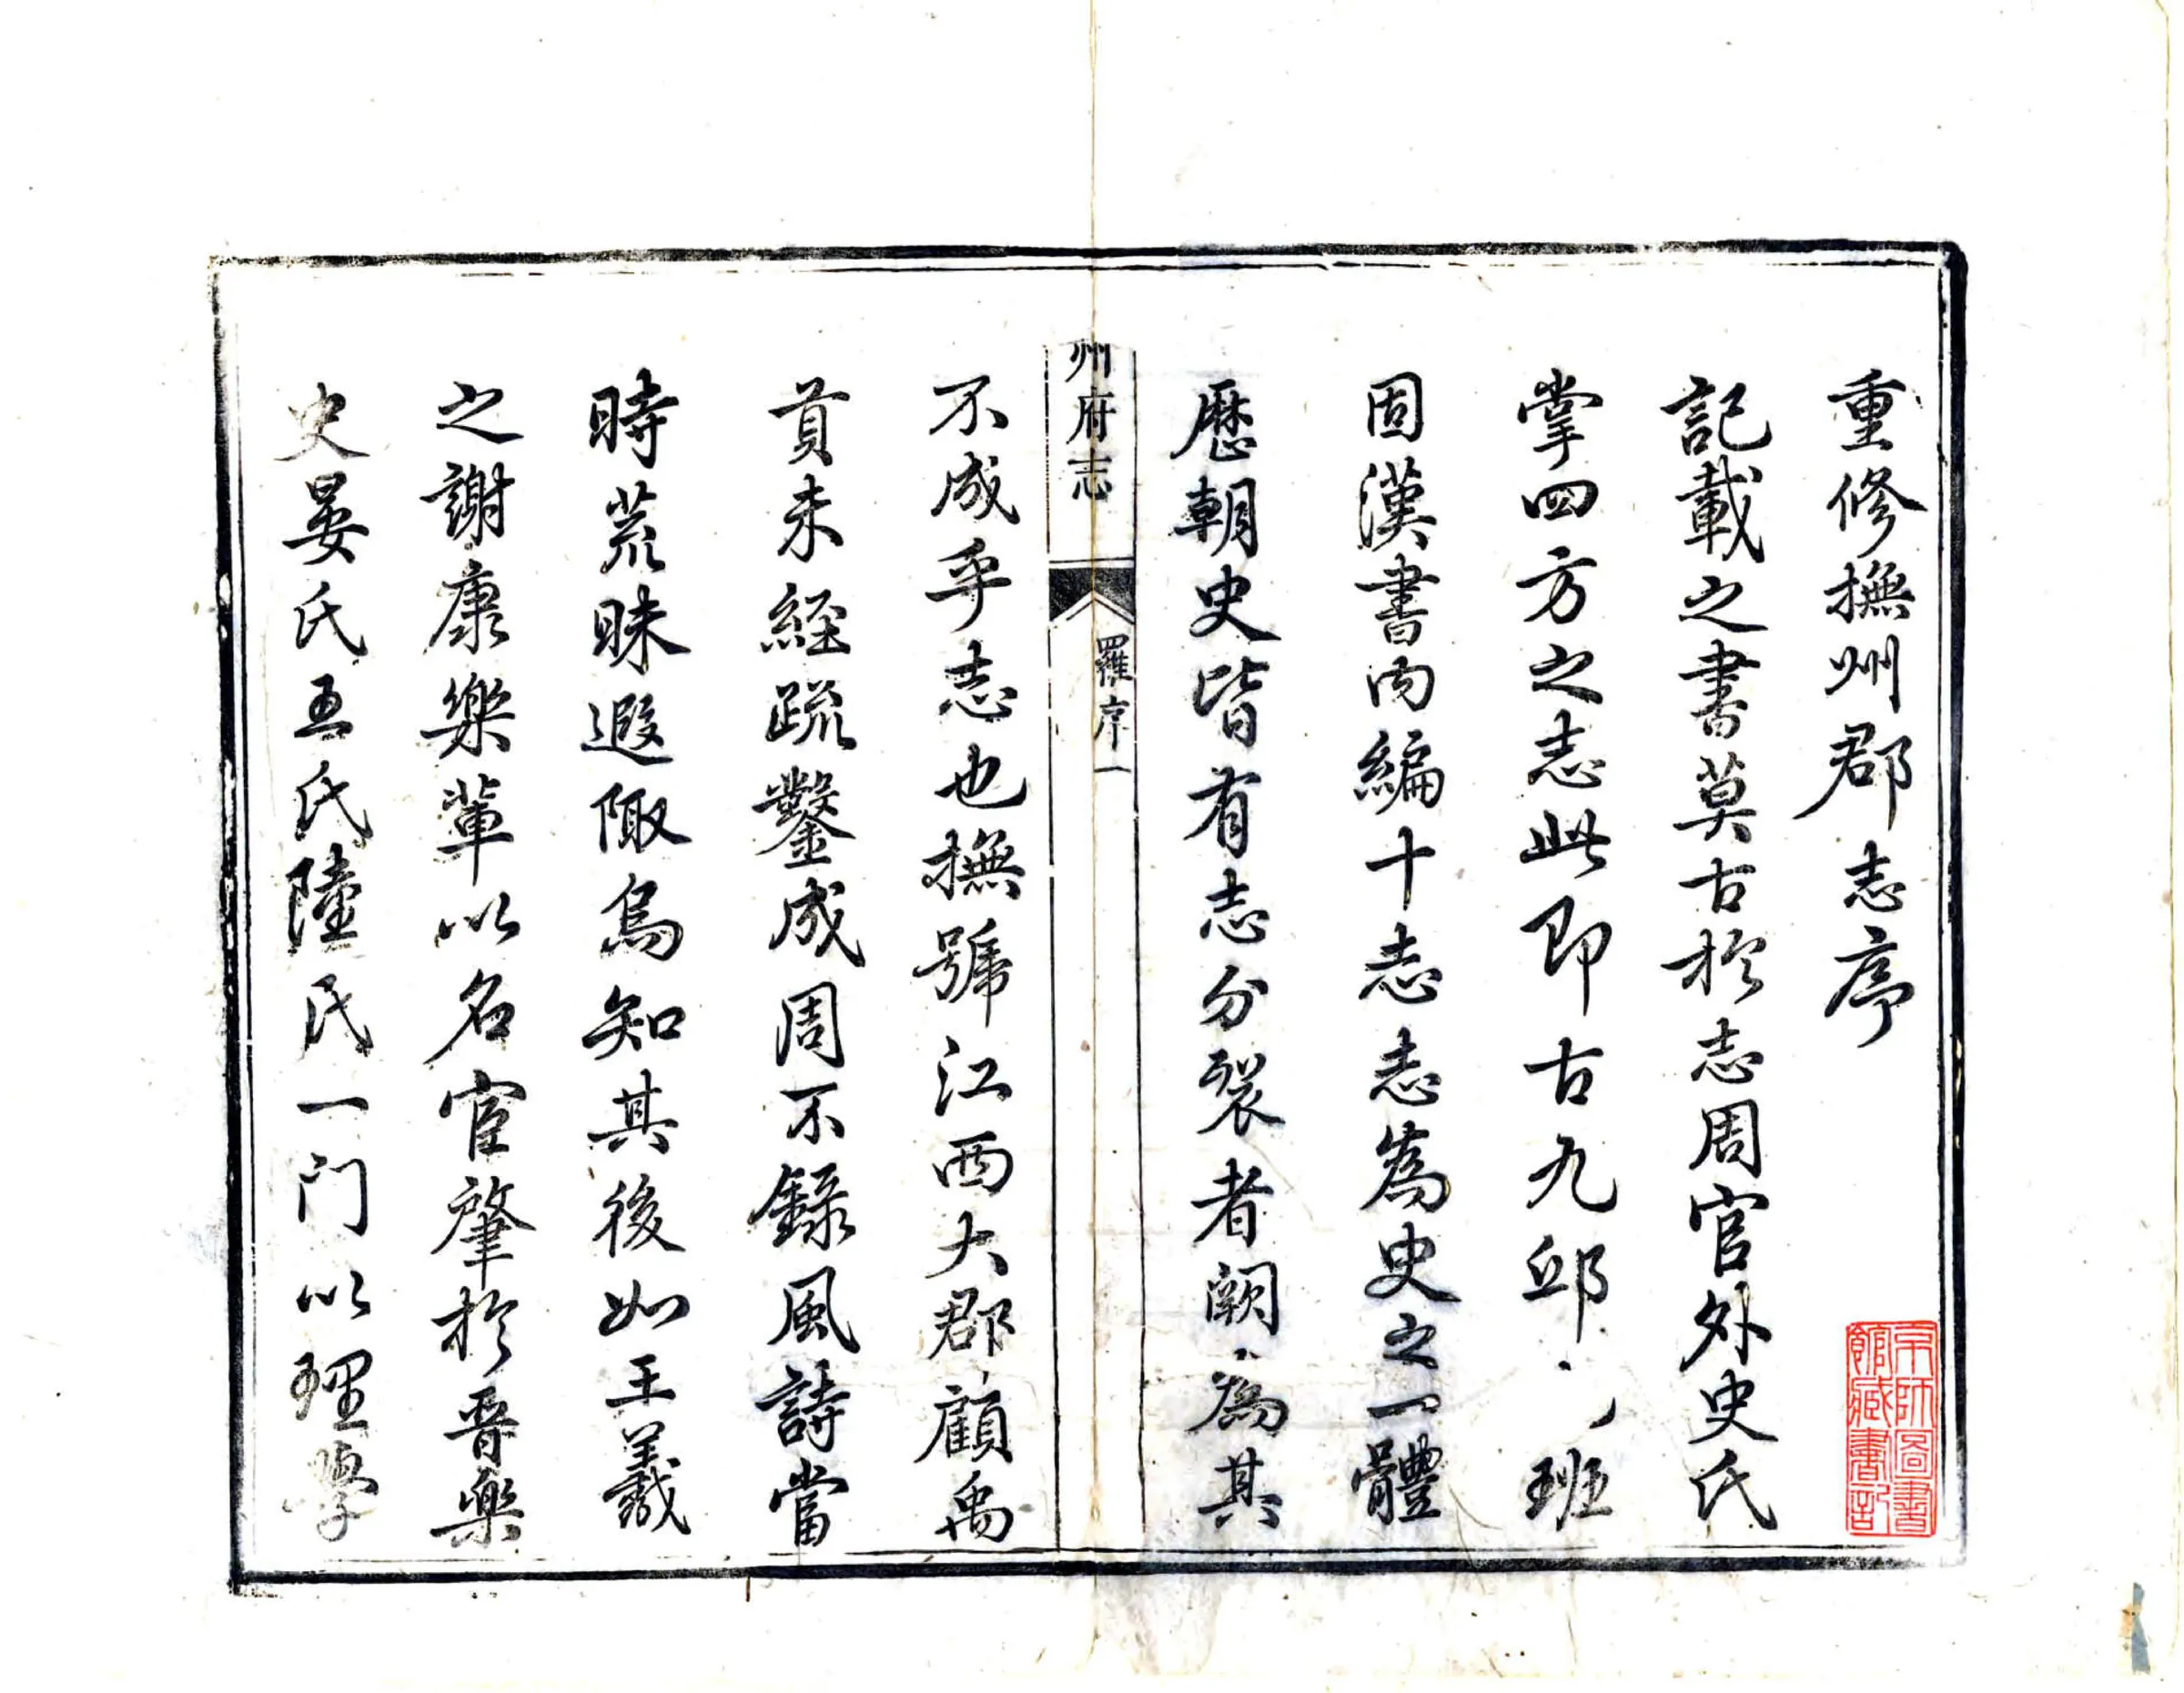 重修撫州郡志序
記載之書莫古於志周官外史氏
掌四方之志此即古九邱 班
固漢書內編十志志為史之一體
歷朝史皆有志分裂者闕為其
州府志 羅序 一
不成乎志也撫號江西大郡顧禹
貢未經疏鑿成周不錄風詩當
時荒昧遐陬烏知其後如王羲
之謝康樂輩以名宦肇於晉樂
史晏氏王氏陸氏一門以理學
京師圖書
館藏書記